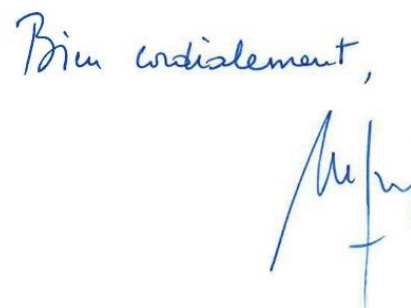 Bien cordialement,